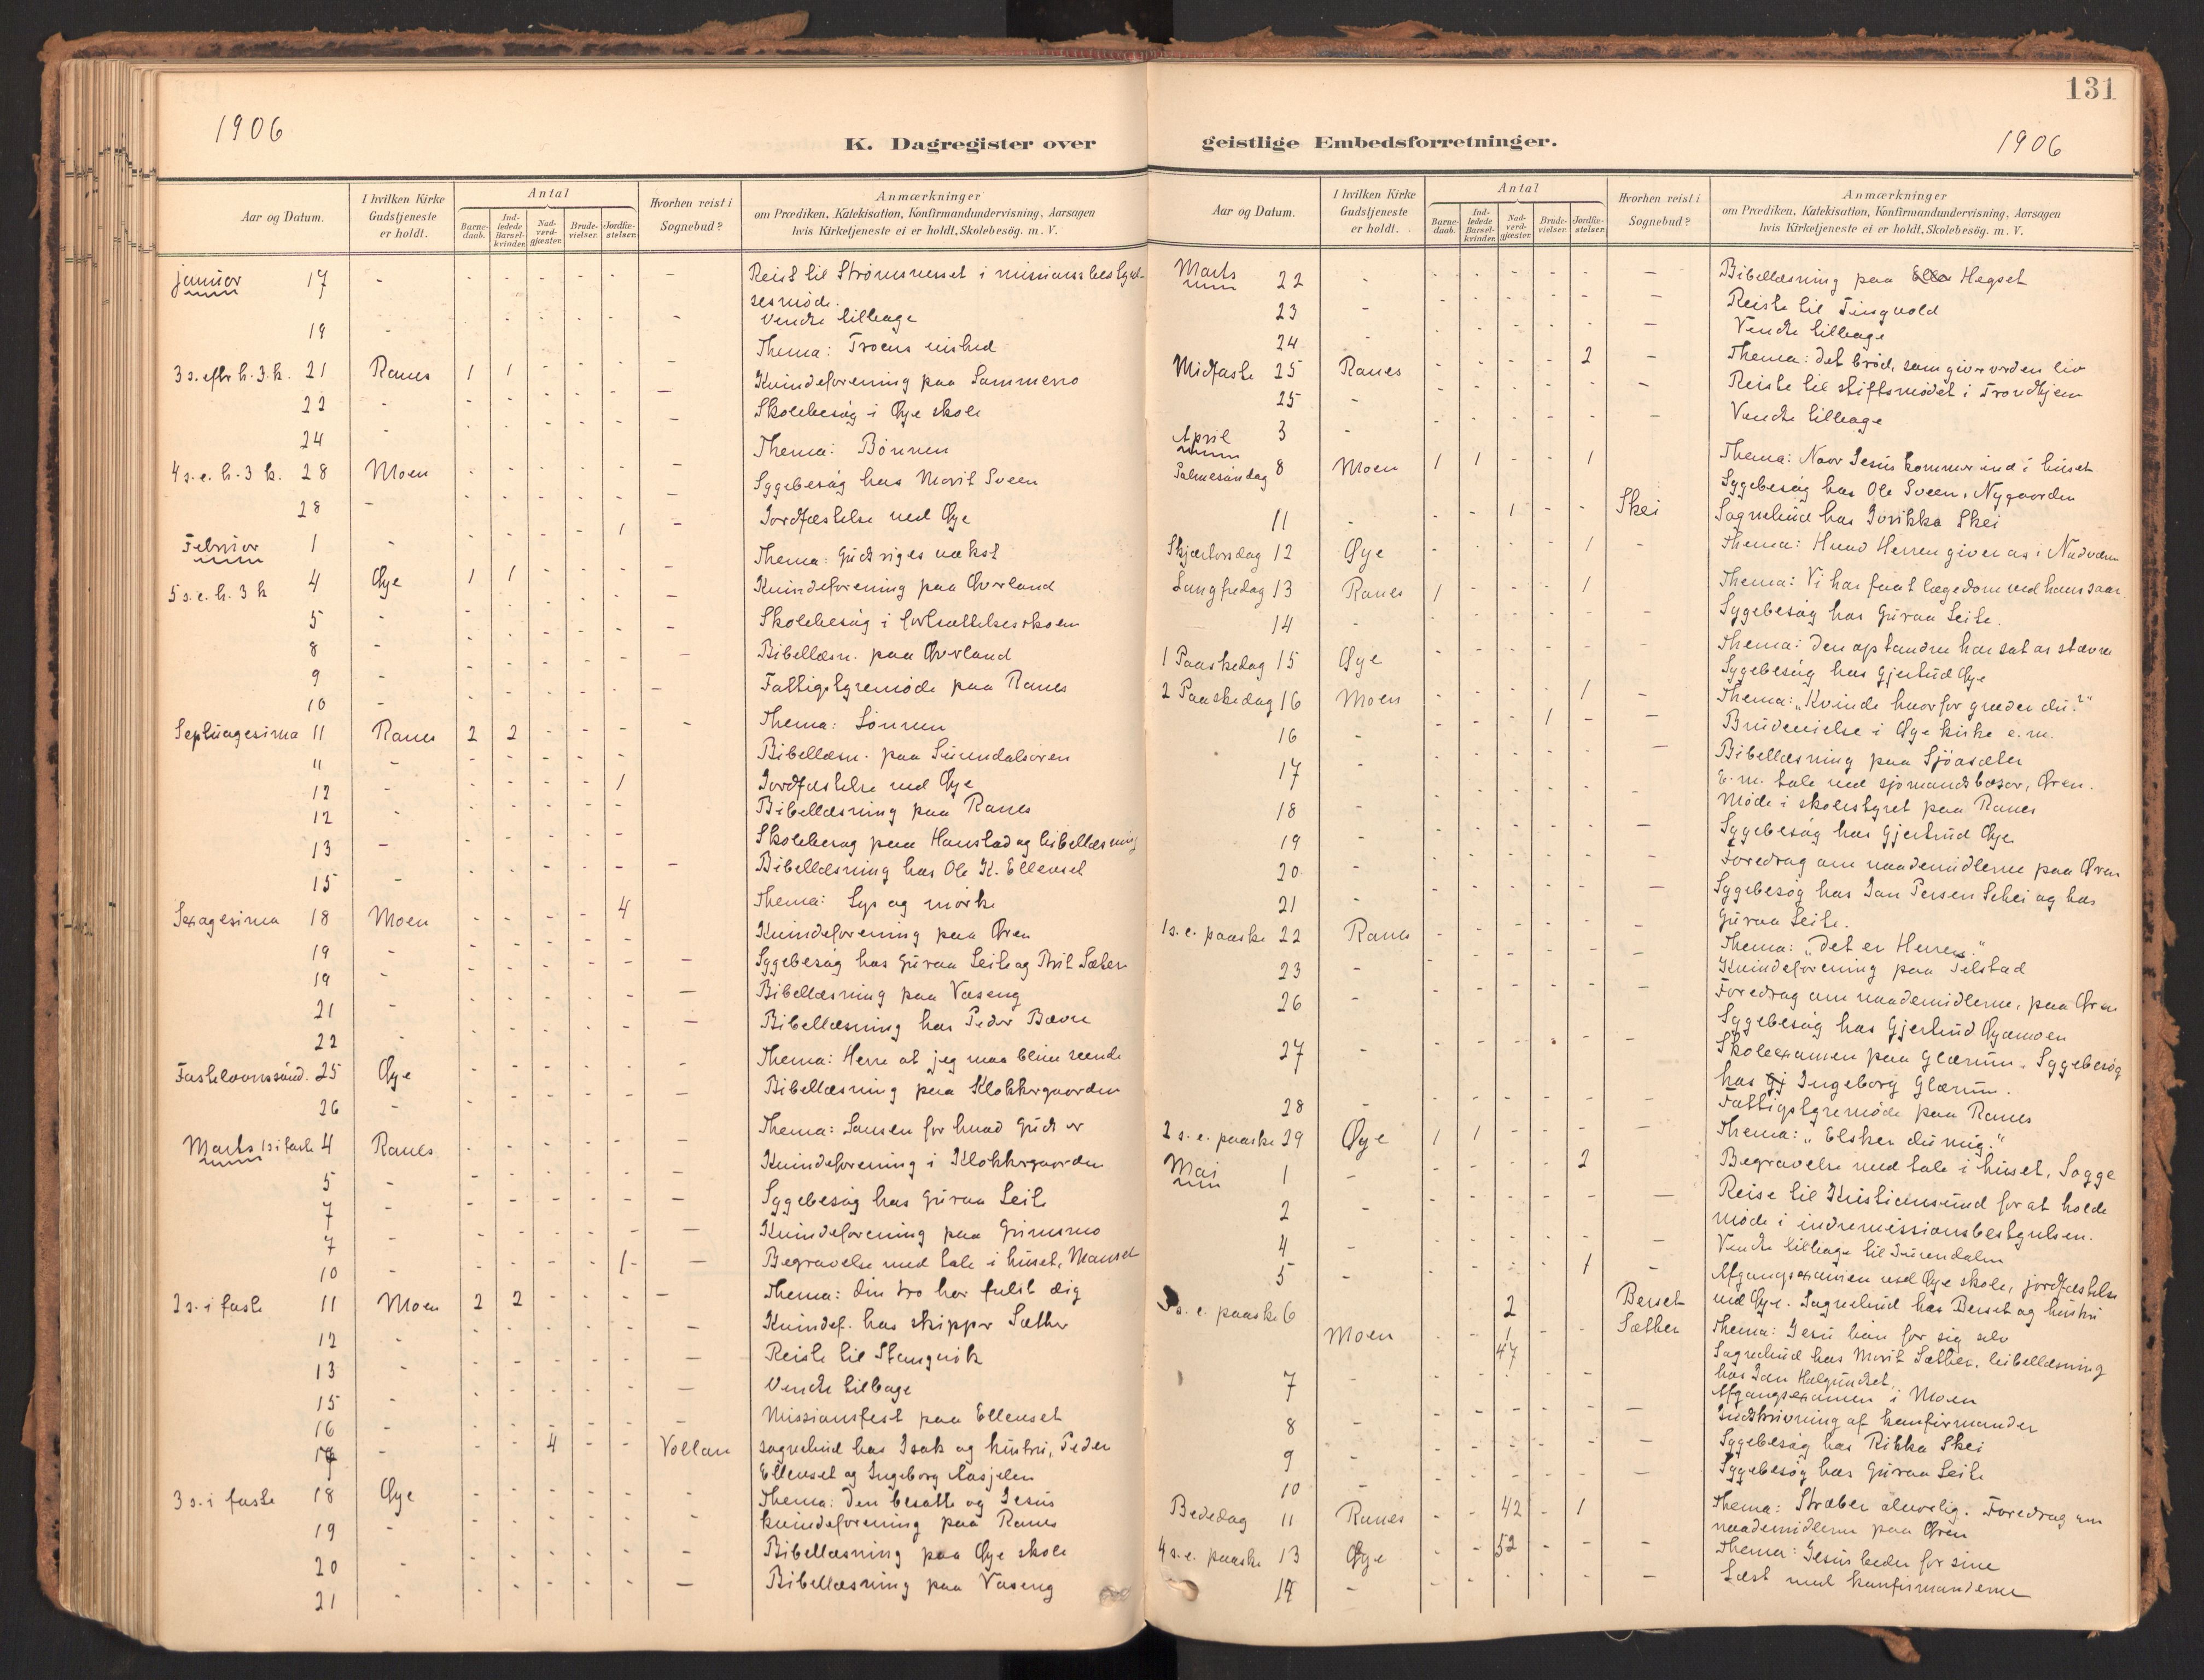 131
1906
K. Dagregister over geistlige Embedsforretninger.
1906
Aar og Datum.
I hvilken Kirke Gudstjeneste er holdt.
Antal
Barne-daab.
Ind-ledede Barsel-kvinder.
Nad-verd-gjæster.
Brude-vielser.
Jordfæ-stelser.
Hvorhen reist i Sognebud?
Anmærkninger
om Prædiken, Katekisation, Konfirmandundervisning, Aarsagen
hvis Kirketjeneste ei er holdt, Skolebesøg. m. V.
januar 17 - - - - - - - Reist til Strömsnesset i missionsbestyrel-
sesmöde.
19 - - - - - - - Vendte tilbage
3 s. eftr h. 3. k. 21 Ranes 1 1 - - - - Thema: Troens vished
22 - - - - - - - Kvindeforening paa Sammemo
24 - - - - - - - Skolebesög i Øye skole
4 s. e. h. 3 k. 28 Moen - - - - - - Thema: Bönnen
28 - - - - - - - Sygebesög hos Marit Sveen
Februar 1 - - - - - 1 - Jordfæstelse ved Øye
5 s. e. h. 3 k 4 Øye 1 1 - - - - Thema: Guds riges vækst
5 - - - - - - - Kvindeforening paa Øverland
8 - - - - - - - Skolebesög i fortsættelsesskolen
9 - - - - - - - Bibellæsn. paa Øverland
10 - - - - - - - Fattigstyremöde paa Ranes
Septuagesima 11 Ranes 2 2 - - - - Thema: Lönnen
11 - - - - - - Bibellæsn. paa Surendalsören
12 - - - - - 1 Jordfæstelse ved Øye
12 - - - - - - Bibellæsning paa Ranes
13 - - - - - - Skolebesög paa Hanstad og bibellæsning
15 - - - - - - - Bibellæsning hos Ole K. Ellevset
Sexagesima 18 Moen - - - - 4 Thema: Lys og mörke
19 - - - - - - Kvindeforening paa Øren
19 - - - - - - - Sygebesög hos Guraa Leite og Brit Sæter
21 - - - - - - - Bibellæsning paa Vaseng
22 - - - - - - - Bibellæsning hos Peder Bævre
Fastelavnssönd. 25 Øye - - - - - - Thema: Herre at jeg maa blive seende
26 - - - - - - - Bibellæsning paa Klokkergaarden
Marts 1 s i faste 4 Ranes - - - - - - Thema: Sansen for hvad Guds er
5 - - - - - - - Kvindeforening i Klokkergaarden
7 - - - - - - - Sygebesög hos Guraa Leite
7 - - - - - - - Kvindeforening paa Grimsmo
10 - - - - - 1 - Begravelse med tale i huset, Manset
2 s. i faste 11 Moen 2 2 - - - - Thema: din tro har frelst dig
12 - - - - - - - Kvindef. hos skipper Sæther
13 - - - - - - - Reiste til Stangvik
15 - - - - - - - Vendte tilbage
16 - - - - - - - Missionsfest paa Ellevset
17 - - - 4 - - Vollan sognebud hos Isak og hustru, Peder
Ellevset og Ingeborg Aasjelen
3 s. i faste 18 Øye - - - - - - Thema: Den besatte og Jesus
19 - - - - - - - kvindeforening paa Ranes
20 - - - - - - - Bibellæsning paa Øye skole
21 - - - - - - - Bibellæsning paa Vaseng
Aar og Datum.
I hvilken Kirke Gudstjeneste er holdt.
Antal
Barne-daab.
Ind-ledede Barsel-kvinder.
Nad-verd-gjæster.
Brude-vielser.
Jordfæ-stelser.
Hvorhen reist i Sognebud?
Anmærkninger
om Prædiken, Katekisation, Konfirmandundervisning, Aarsagen
hvis Kirketjeneste ei er holdt, Skolebesøg. m. V.
Marts 22 - - - - - - - Bibellæsning paa Hegset
23 - - - - - - - Reiste til Tingvold
24 - - - - - - - Vendte tilbage
Midfaste 25 Ranes - - - - 2 - Thema: det bröd, som giver verden liv
25 - - - - - - - Reiste til stiftsmödet i Trondhjem
April 3 - - - - - - - Vendte tilbage
Palmesöndag 8 Moen 1 1 - - 1 Thema: Naar Jesus kommer ind i huset
Sygebesög hos Ole Sveen, Nygaarden
11 - - - 1 - - Skei Sognebud hos Jorikka Skei
Skjærtorsdag 12 Øye - - - - 1 - Thema: Hvad Herren giver os i Nadveren
Langfredag 13 Ranes 1 - - - 1 Thema: Vi har faat lægedom ved hans saar.
14 - - - - - - - Sygebesög hos Guraa Leite.
1 Paaskedag 15 Øye - - - - - Thema: Den opstandne har sat os stævne
Sygebesög hos Gjertrud Øye
2 Paaskedag 16 Moen - - - - 1 - Thema: "Kvinde hvorfor græder du?"
16 - - - 1 - - Brudevielse i Øye kirke e. m.
17 - - - - - - - Bibellæsning paa Sjöasæter
E. m. tale ved sjömandsbasar, Øren.
18 - - - - - - - Möde i skolestyret paa Ranes
19 - - - - - - - Sygebesög hos Gjertrud Øye
20 - - - - - - - Foredrag om naademidlerne paa Øren
21 - - - - - - - Sygebesög hos Jon Persen Schei og hos
Guraa Leite.
1 s. e. paaske 22 Ranes - - - - - - Thema: "Det er Herren."
23 - - - - - - - Kvindeforening paa Telstad
26 - - - - - - - Foredrag om naademidlerne, paa Øren
Sygebesög hos Gjertrud Øyamoen
27 - - - - - - - Skoleexamen paa Glærum. Sygebesög
hos Ingeborg Glærum.
28 - - - - - - - Fattigstyremöde paa Ranes
2 s. e. paaske 29 Øye 1 1 - - - - Thema: "Elsker du mig."
Mai 1 - - - - - 2 Begravelse med tale i huset, Sogge
2 - - - - - - - Reise til Kristiansund for at holde
möde i indremissionsbestyrelsen.
4 - - - - - - - Vendte tilbage til Surendalen
5 - - - - - 1 - Afgangsexamen ved Øye skole, jordfæstelse
2 Berset ved Øye. Sognebud hos Berset og hustru
3 s. e. paaske 6 Moen - - 1 47 - - Sæther Thema: Jesu bön for sig selv
Sognebud hos Marit Sæther, bibellæsning
hos Jon Halgunset
7 - - - - - - Afgangsexamen i Moen
8 - - - - - - - Indskrivning af konfirmander
9 - - - - - - - Sygebesög hos Rikka Skei
10 - - - - - - - Sygebesög hos Guraa Leite
Bededag 11 Ranes - - 42 - 1 Thema: Stræber alvorlig. Foredrag om
naademidlerne paa Øren
4 s. e. paaske 13 Øye - - 52 - - - Thema: Jesus beder for sine
14 - - - - - - - Læst med konfirmanderne